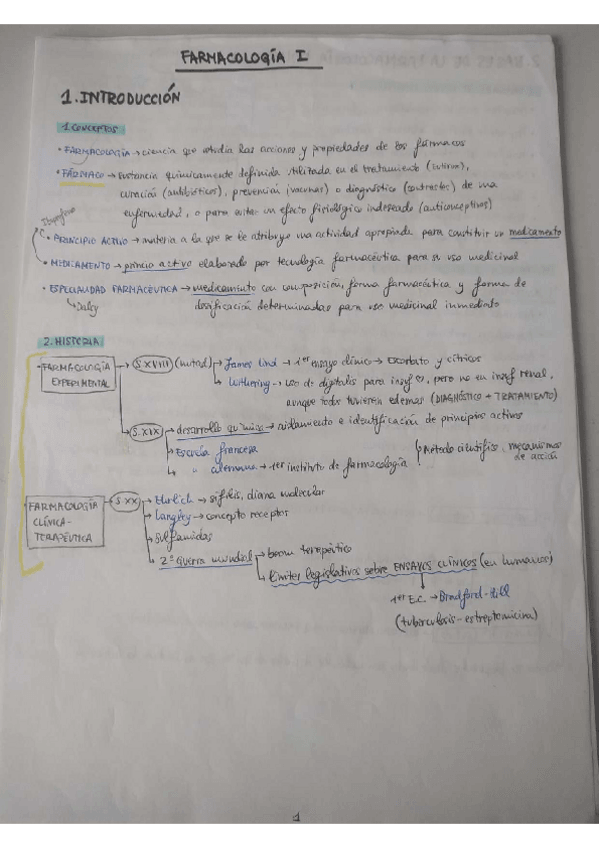 FARMACOLOGÍA I
1. INTRODUCCIÓN
1. CONCEPTOS
• FARMACOLOGÍA → ciencia que estudia las acciones y propiedades de los fármacos
• FÁRMACO → sustancia químicamente definida utilizada en el tratamiento (),
curación (antibióticos), prevención (vacunas) o diagnóstico (contrastes) de una
enfermedad, o para evitar un efecto fisiológico indeseado (anticonceptivos)
Ibuprofeno
• PRINCIPIO ACTIVO → materia a la que se le atribuye una actividad apropiada para constituir un medicamento
• MEDICAMENTO → principio activo elaborado por tecnología farmacéutica para su uso medicinal
• ESPECIALIDAD FARMACÉUTICA → medicamento con composición, forma farmacéutica y forma de
↳ Dalsy dosificación determinadas para uso medicinal inmediato
2. HISTORIA
FARMACOLOGÍA EXPERIMENTAL → S.XVIII (mitad) → James Lind → 1er ensayo clínico → Escorbuto y cítricos
↳ Withering → uso de digitalis para insuf ♡, pero no en insuf renal,
aunque todos tuvieran edemas (DIAGNÓSTICO + TRATAMIENTO)
S.XIX → desarrollo química → aislamiento e identificación de principios activos
→ Escuela francesa
↳ " alemana → 1er instituto de farmacología
↳ Método científico, mecanismos
de acción
FARMACOLOGÍA CLÍNICA - TERAPÉUTICA → S.XX → Ehrlich → sífilis, diana molecular
→ Langley → concepto receptor
→ Sulfamidas
→ 2ª Guerra mundial → boom terapéutico
↳ límites legislativos sobre ENSAYOS CLÍNICOS (en humanos)
1er E.C. → Bradford-Hill
(tuberculosis - estreptomicina)
1